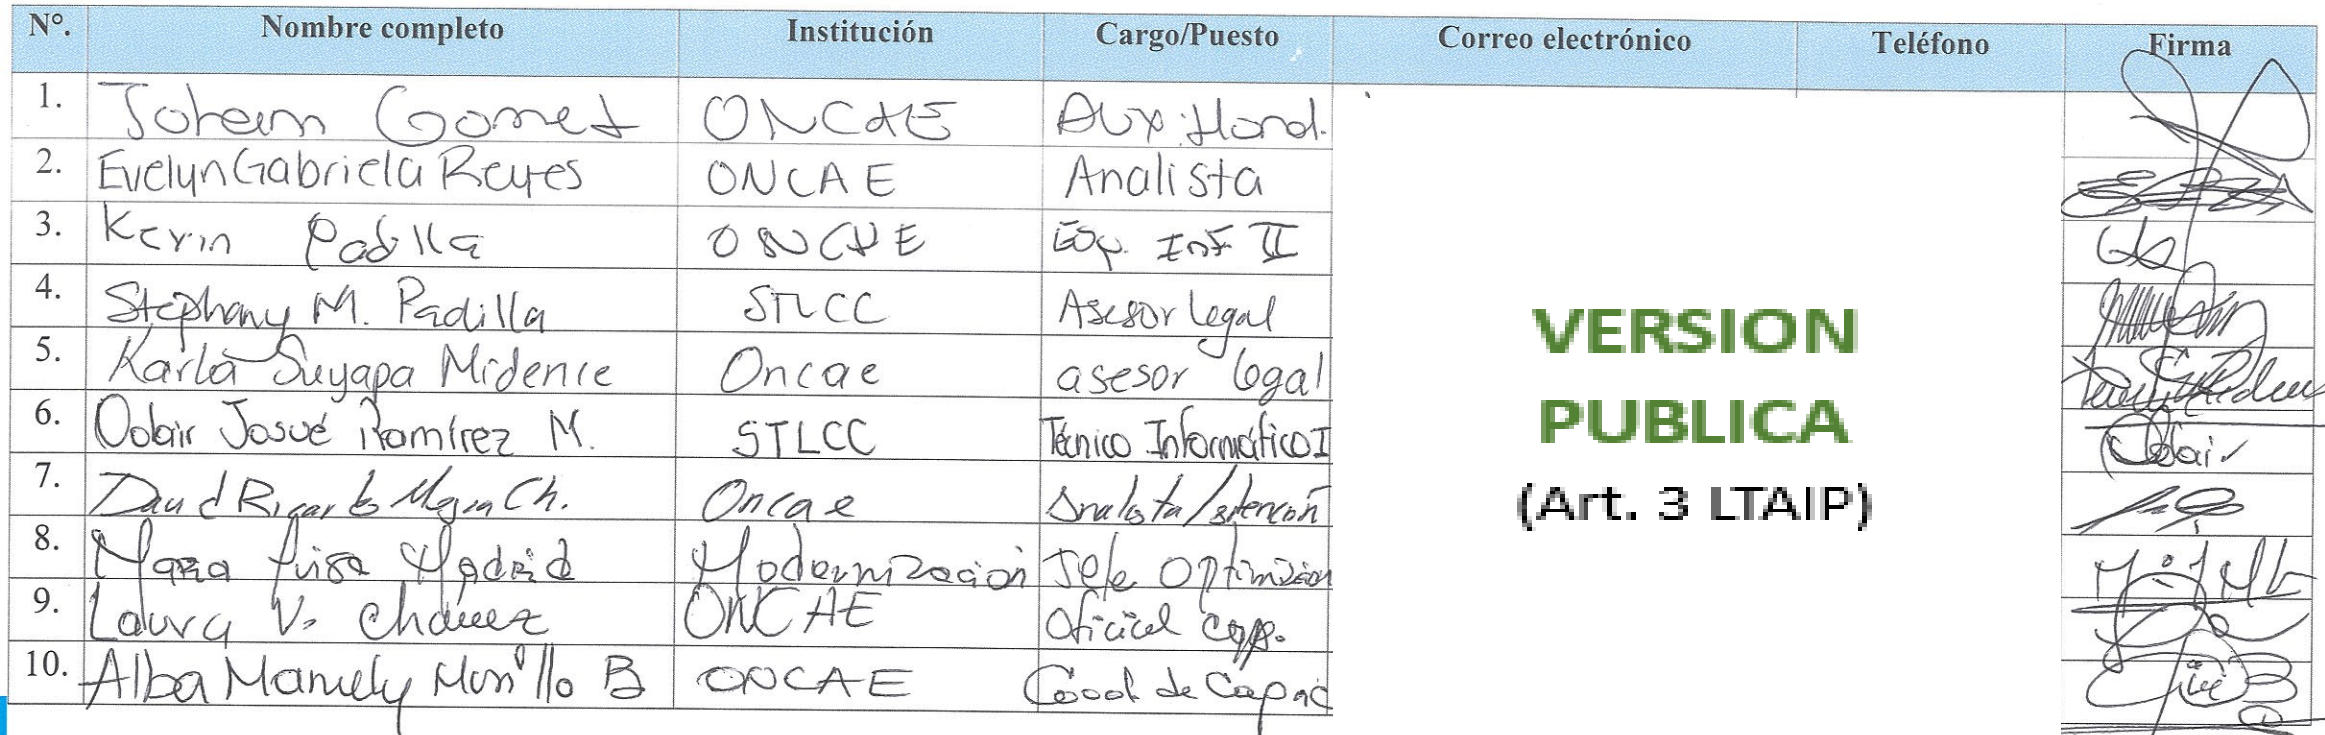 N°. Nombre completo Institución Cargo/Puesto Correo electrónico Teléfono Firma
1. Gomez ONCAE Aux.
2. Evelyn Gabriela Reyes ONCAE Analista
3. Kevin Padilla ONCAE Inf II
4. Stephany M. Padilla STLCC Asesor Legal
5. Karla Suyapa Midence Oncae asesor legal
6. Odair Josué Ramírez M. STLCC Técnico Informático I Odair
7. David Ricardo Ch. Oncae Analista/atención
8. Luisa Madrid Modernización Jefe
9. Laura V. Chávez ONCAE Oficial cap.
10. Alba B ONCAE Cood de Capac
VERSION
PUBLICA
(Art. 3 LTAIP)